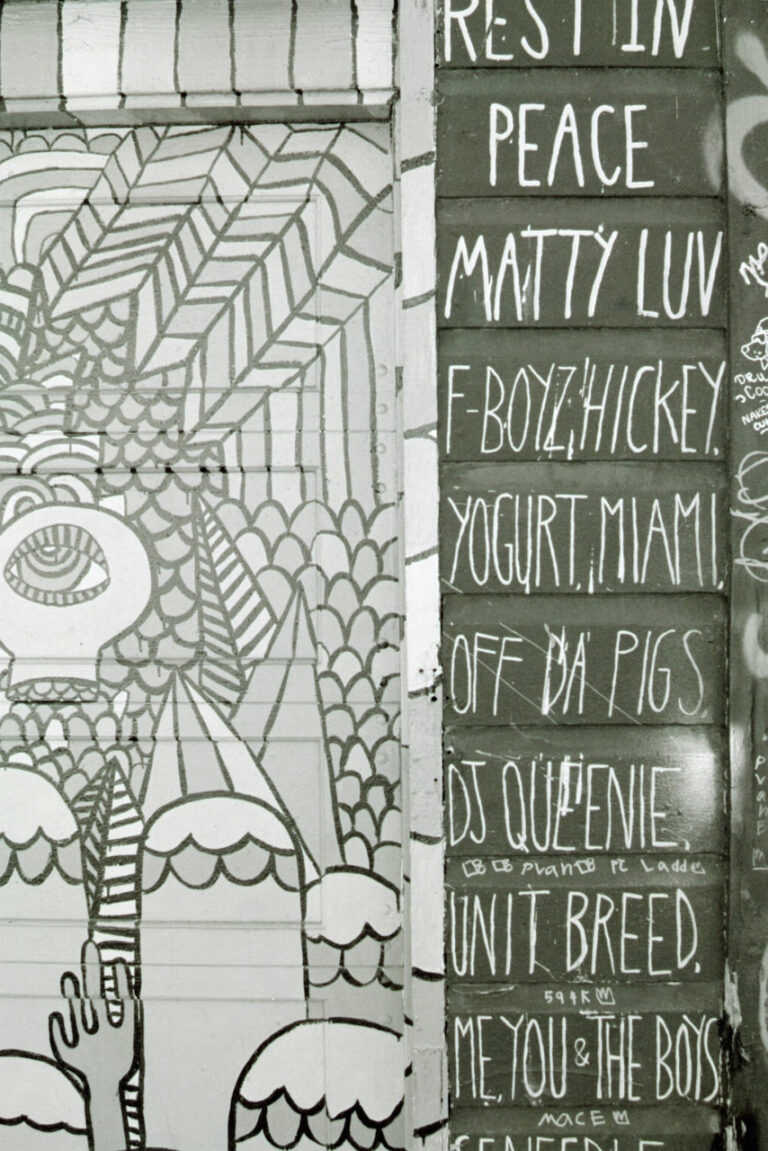 REST IN
PEACE
MATTY LUV
F-BOYZ, HICKEY,
YOGURT, MIAMI,
OFF DA' PIGS
DJ QUEENIE,
UNIT BREED,
594K
ME, YOU & THE BOYS
MACE